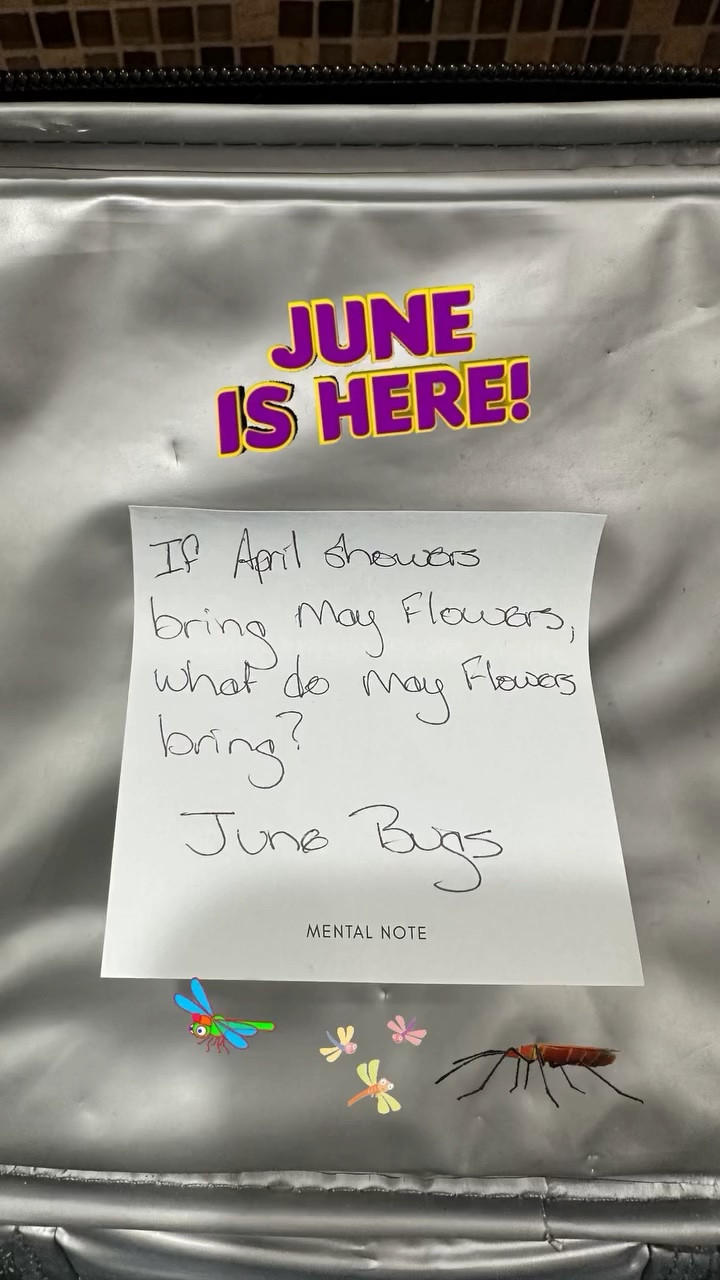 JUNE
IS HERE!
If April showers
bring May Flowers,
what do May Flowers
bring?
June Bugs
MENTAL NOTE